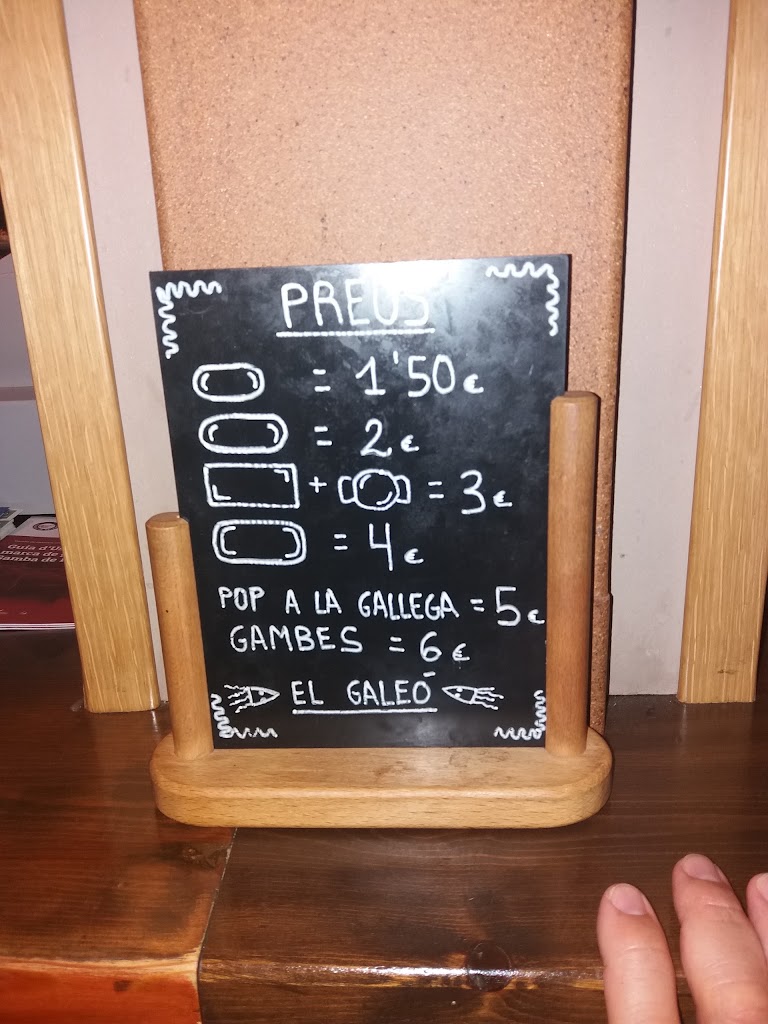 PREUS
= 1'50 €
= 2 €
+ = 3 €
= 4 €
POP A LA GALLEGA = 5 €
GAMBES = 6 €
EL GALEÓ
Guia d'
marca de
Gamba de